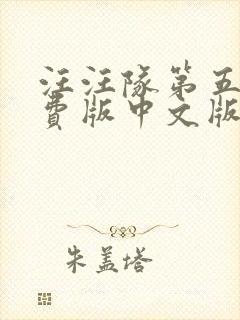 汪汪隊第五
費版中文版
朱盖塔